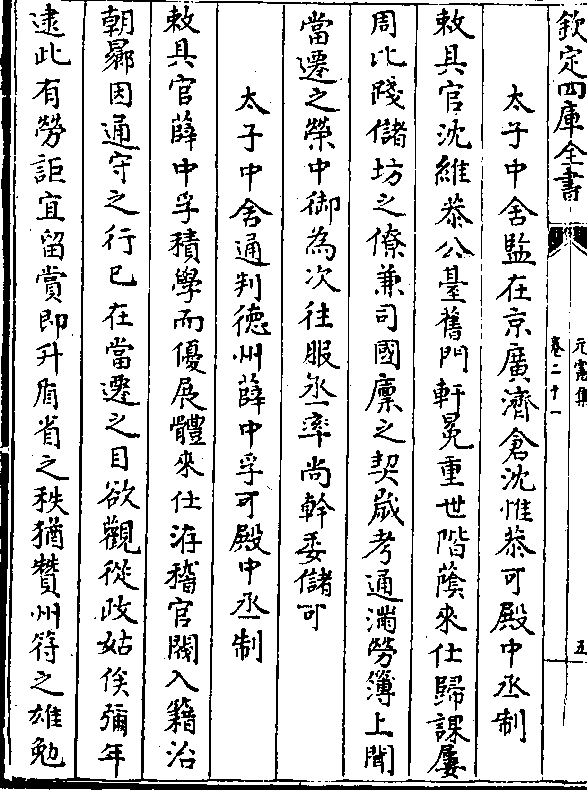 欽定四庫全書
元憲集
卷二十一
五
太子中舍監在京廣濟倉沈惟恭可殿中丞制
敕具官沈維恭公臺舊門軒冕重世階蔭來仕歸課屢
周比踐儲坊之僚兼司國廩之契歲考通滿勞簿上聞
當遷之榮中御為次往服丞率尚幹委儲可
太子中舍通判德州薛中孚可殿中丞制
敕具官薛中孚積學而優展體來仕洊稽官閥入籍治
朝郷因通守之行已在當遷之目欲觀從政姑俟彌年
逮此有勞詎宜留賞即升盾省之秩猶贊州符之雄勉